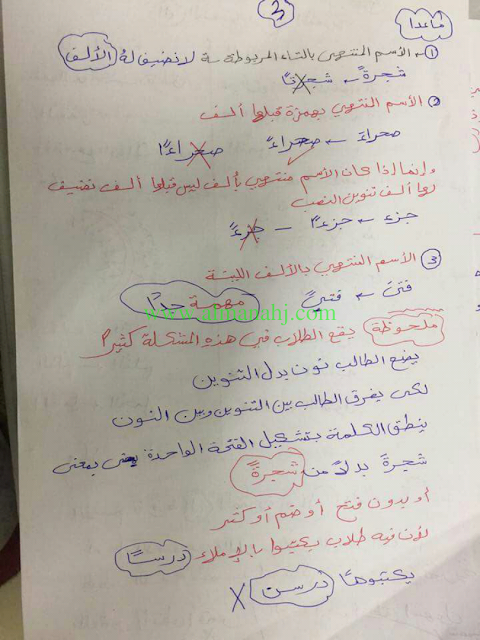 3
ماعدا
① - الأسم المنتهي بالتاء المربوطة ة لا نضيف له الألف
شجرةً ← شجرتاً
② الأسم المنتهي بهمزة قبلها ألف
صحراء ← صحراءً صحراءًا
وإنما إذا كان الأسم منتهي بألف ليس قبلها ألف نضيف
لها ألف تنوين النصب
جزء ← جزءًا - جزءً
③ الأسم المنتهي بالألف اللينة
فتى ← فتىً
مهمة جدًا
www.almanahj.com
ملحوظة يقع الطلاب في هذه المشكلة كثيرًا
يضع الطالب نون بدل التنوين
لكى يفرق الطالب بين التنوين وبين النون
ينطق الكلمة بتشكيل الفتحة الواحدة يعنى بمعنى
شجرةَ بدلاً من شجرةً
أو بدون فتح أو ضم أو كسر
لأن فيه طلاب يكتبوا بالإملاء درسًا
يكتبوها درسن X